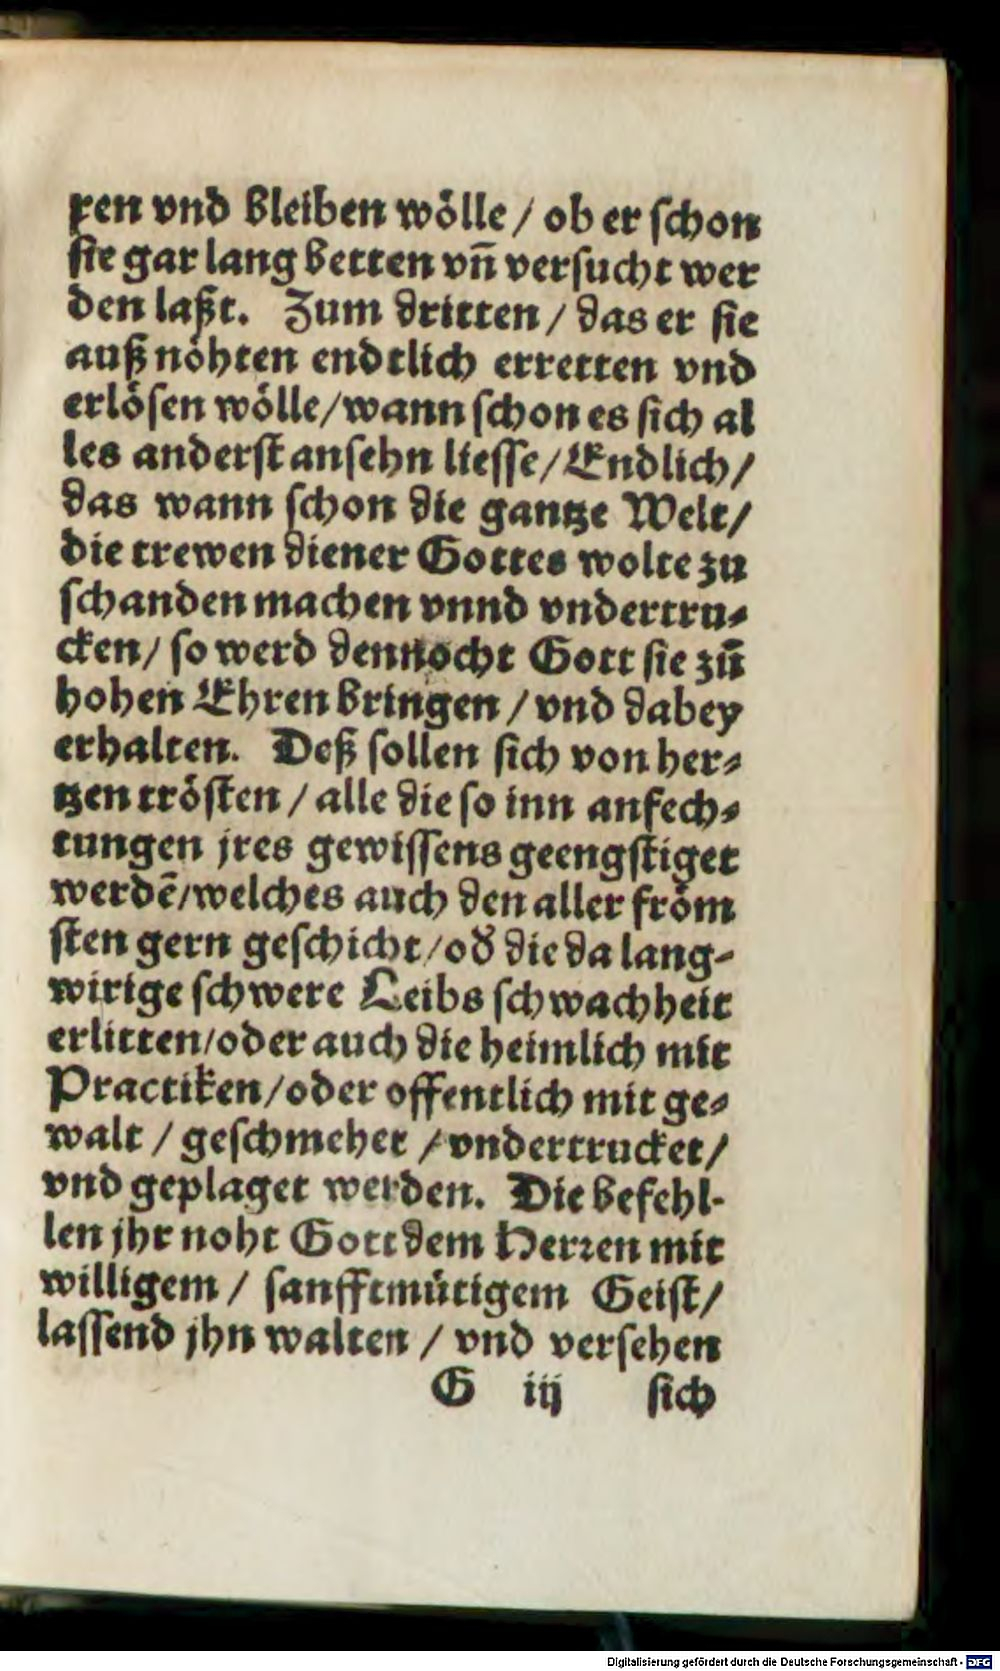 ren vnd bleiben wölle / ob er schon
sie gar lang betten vn̄ versucht wer
den laßt. Zum dritten / das er sie
auß nöhten endtlich erretten vnd
erlösen wölle / wann schon es sich al
les anderst ansehn liesse / Endlich /
das wann schon die gantze Welt /
die trewen diener Gottes wolte zu
schanden machen vnnd vndertru⸗
cken / so werd dennocht Gott sie zū
hohen Ehren bringen / vnd dabey
erhalten. Deß sollen sich von her⸗
tzen trösten / alle die so inn anfech⸗
tungen jres gewissens geengstiget
werdē / welches auch den aller fröm
sten gern geschicht / od̄ die da lang-
wirige schwere Leibs schwachheit
erlitten / oder auch die heimlich mit
Practiken / oder offentlich mit ge⸗
walt / geschmehet / vndertrucket /
vnd geplaget werden. Die befehl-
len jhr noht Gott dem Herren mit
willigem / sanfftmütigem Geist /
lassend jhn walten / vnd versehen
G iij sich
Digitalisierung gefördert durch die Deutsche Forschungsgemeinschaft - DFG